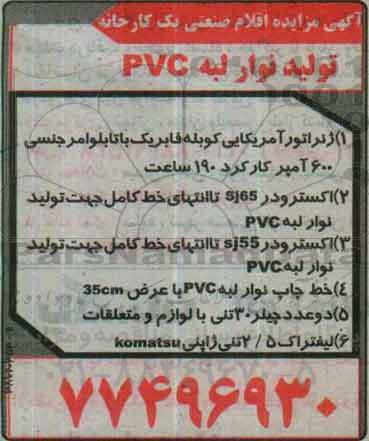 آگهی مزایده اقلام صنعتی یک کارخانه
تولید نوار لبه PVC
۱)ژنراتور آمریکایی کوپله فابریک باتابلوامرجنسی
۶۰۰ آمپر کارکرد ۱۹۰ ساعت
۲)اکسترودر sj65 تاانتهای خط کامل جهت تولید
نوار لبه PVC
۳)اکسترودر sj55 تاانتهای خط کامل جهت تولید
نوار لبه PVC
۴)خط چاپ نوار لبه PVC با عرض 35cm
۵)دوعدد چیلر ۳۰تنی با لوازم و متعلقات
۶)لیفتراک ۲/۵تنی ژاپنی komatsu
۷۷۴۹۶۹۳۰